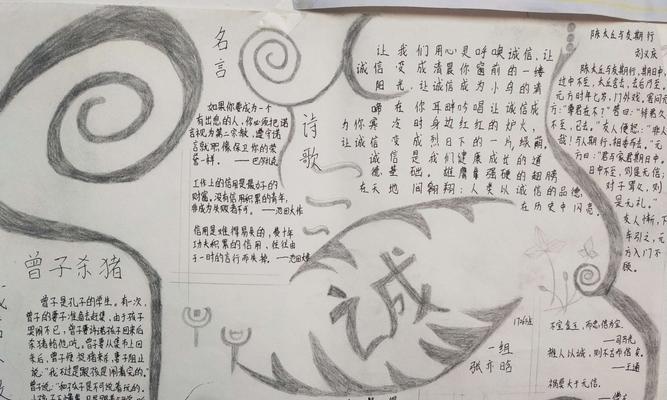 名言
如果你要成为一个
有出息的人，你必须把诺
言视为第二宗教，遵守诺
言就像保卫你的荣
誉一样。——巴尔扎克
工作上的信用是最好的
财富。没有信用积累的青年，
非成为失败者不可。——池田大作
信用是难得易失的，费十年
功夫积累的信用，往往由
于一时的言行而失掉。——池田大作
诗歌
让我们用心是呼唤诚信，让
诚信变成清晨你窗前的一缕
阳光，让诚信成为小鸟的清
啼在你耳畔吟唱让诚信成
为你寒冷时身边红红的炉火，
让诚信变成烈日下的一片绿荫，
诚信是我们健康成长的道
德基础。雄鹰靠强硬的翅膀
在天地间翱翔；人类以诚信的品德
在历史中闪亮。
陈太丘与友期行
刘义庆
陈太丘与友期行，期日中，
过中不至，太丘舍去，去后乃至。
元方时年七岁，门外戏。客问元
方：“尊君在不？”答曰：“待君久
不至，已去。”友人便怒：“非人
哉！与人期行，相委而去。”元
方曰：“君与家君期日中，
日中不至，则是无信；
对子骂父，则
是无礼。”
友人惭，下
车引之，元
方入门不
顾。
曾子杀猪
曾子是孔子的学生。有一次，
曾子的妻子准备去赶集，由于孩子
哭闹不已，曾子妻许诺孩子回来后
杀猪给他吃。曾子妻从集市上回
来后，曾子便捉猪来杀，妻子阻止
说：“我不过是跟孩子闹着玩的。”
曾子说：“和孩子是不可说着玩的。
诚
1706班
一组
张亦晗
不宝金玉，而忠信为宝。
——司马光
推人以诚，则不言而信矣。
——王通
祸莫大于无信。
——傅玄